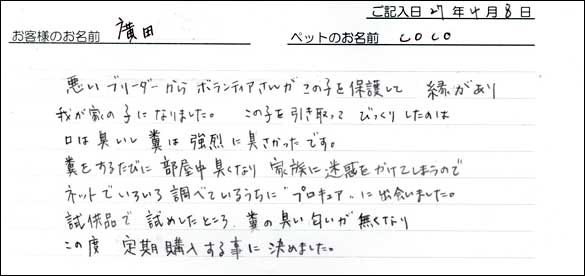 ご記入日 27 年 4 月 8 日
お客様のお名前 廣田 ペットのお名前 COCO
悪いブリーダーから ボランティアさんが この子を保護して 縁があり
我が家の子になりました。 この子を引き取って びっくりしたのは
口は臭いし 糞は 強烈に臭さかったです。
糞をするたびに 部屋中臭くなり 家族に迷惑をかけてしまうので
ネットでいろいろ調べているうちに"プロキュア"に出会いました。
試供品で 試めしたところ、糞の臭い匂いが無くなり
この度 定期購入する事に決めました。